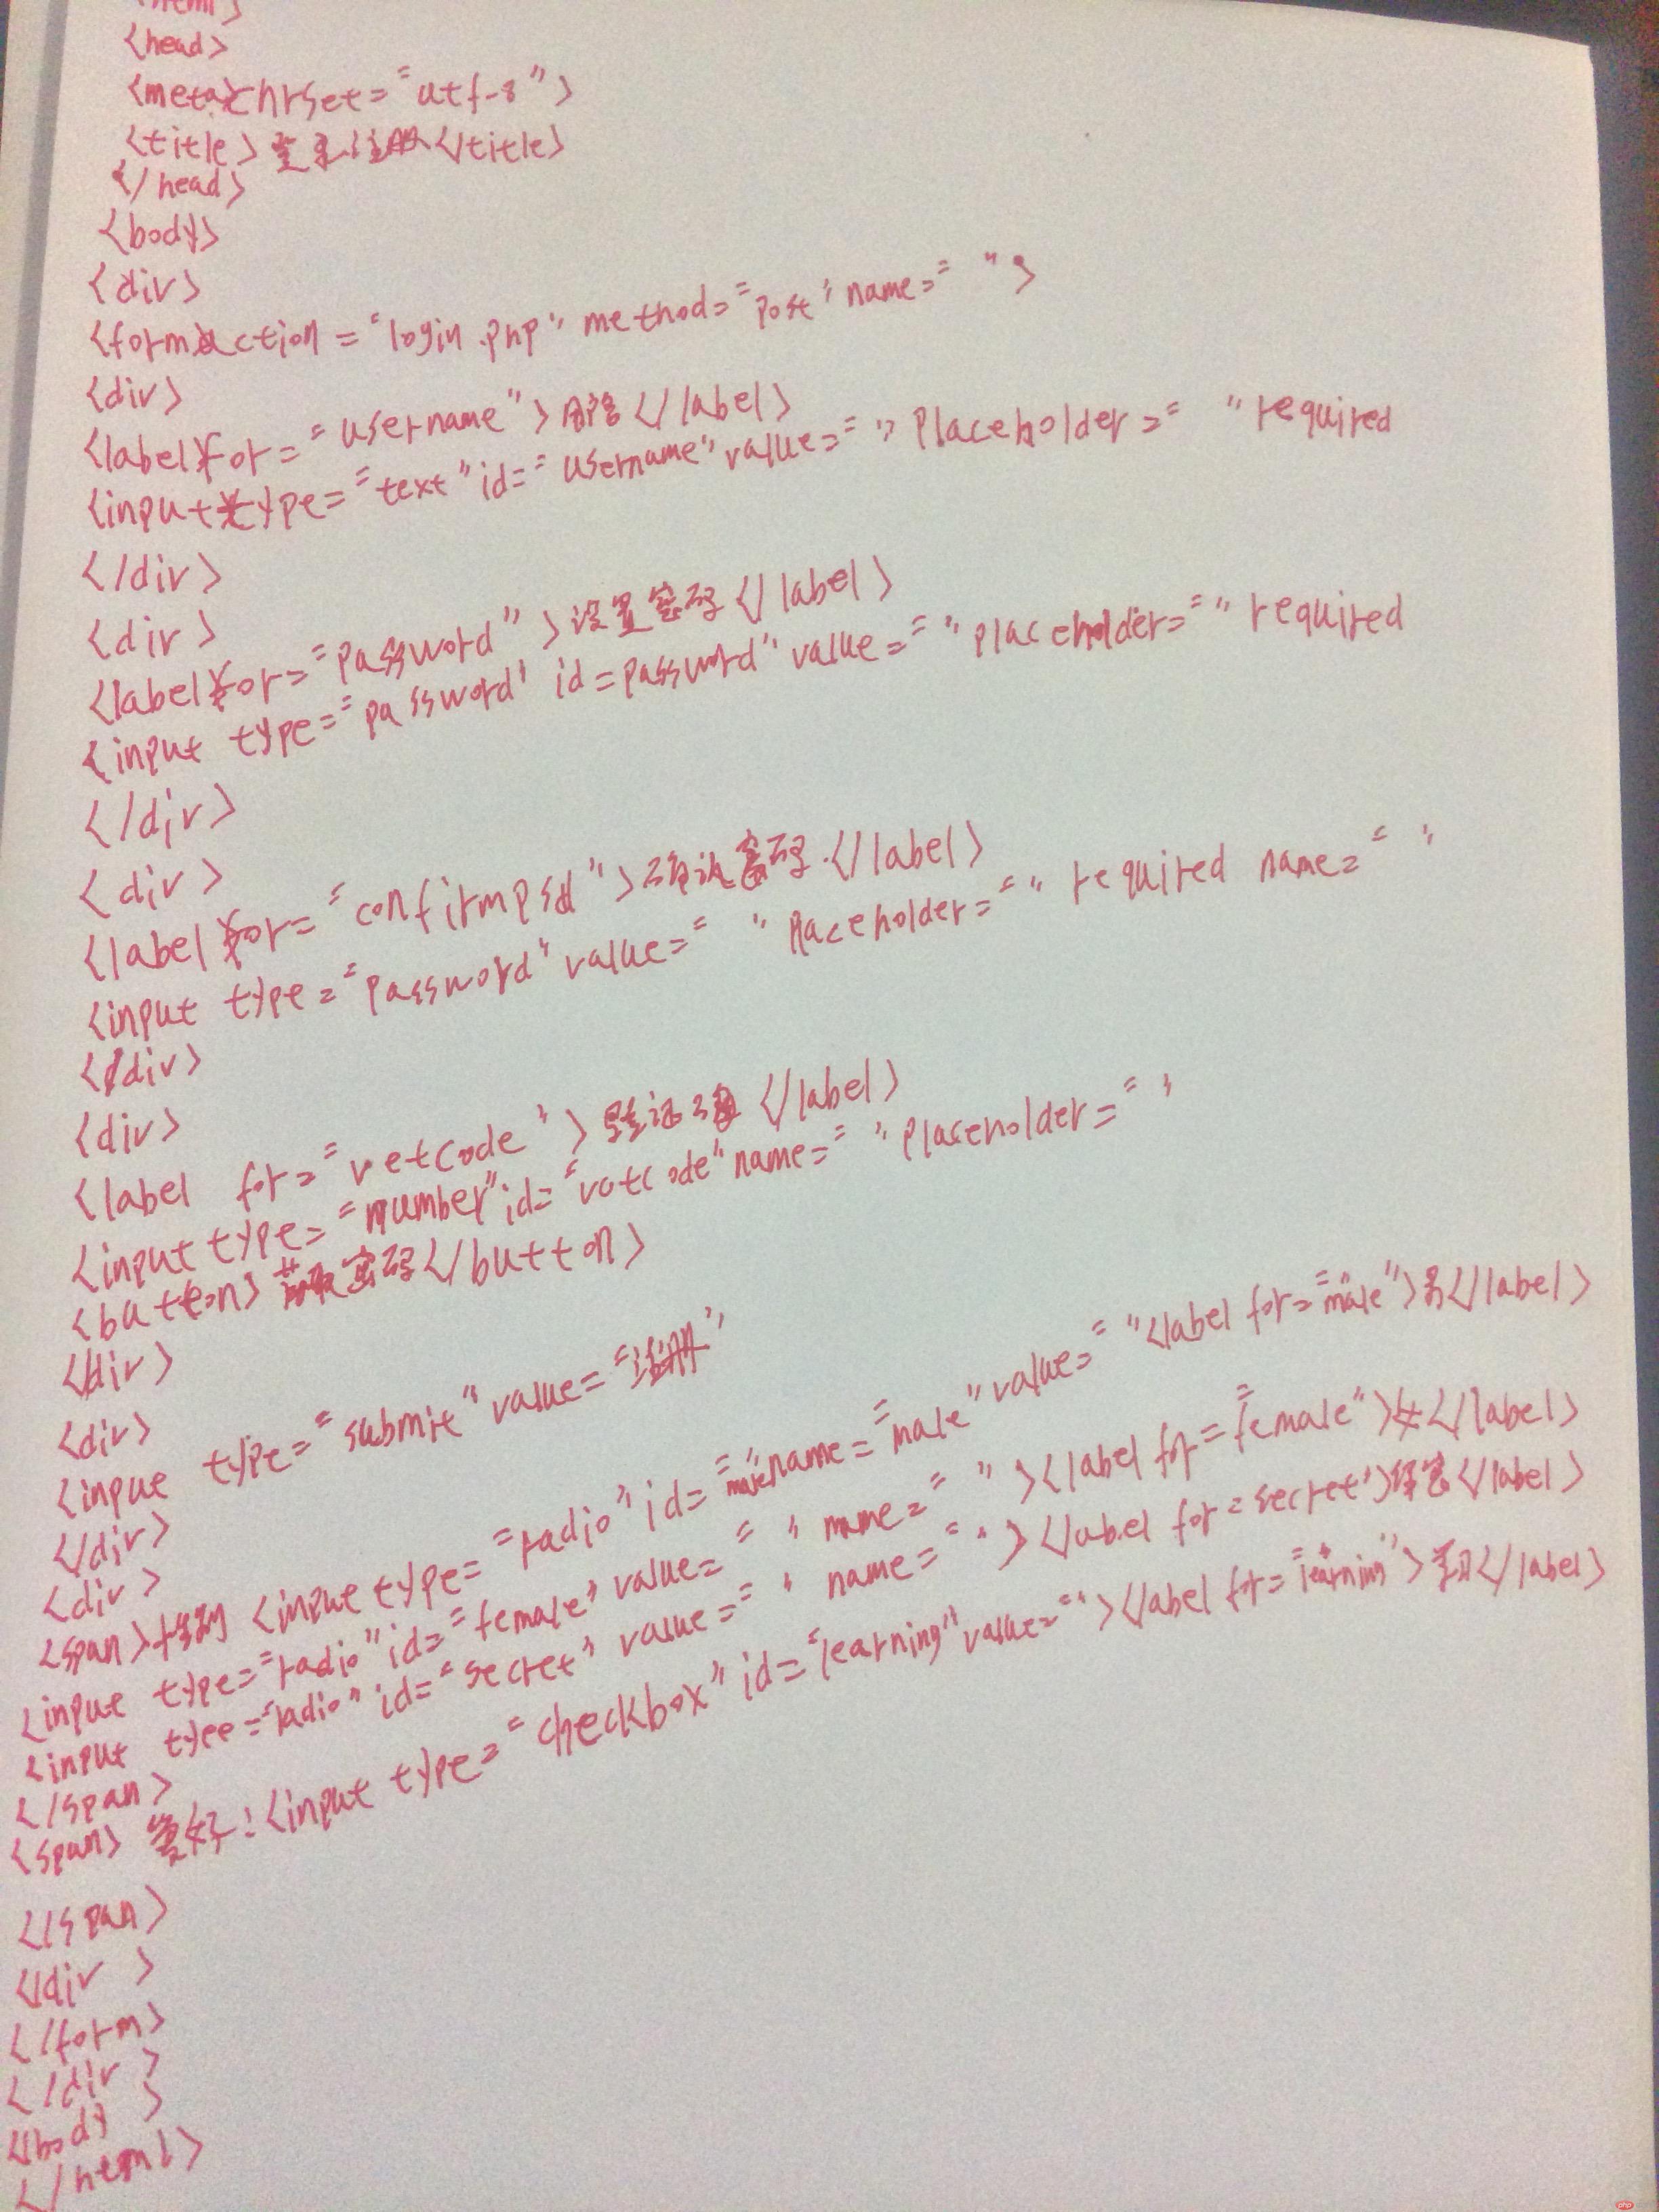 <html>
<head>
<meta chrset="utf-8">
<title>登录注册</title>
</head>
<body>
<div>
<form action="login.php" method="post" name=" ">
<div>
<label for="username"></label>
<input type="text" id="username" value=" " Placeholder=" " required
</div>
<div>
<label for="password">设置密码</label>
<input type="password" id=password" value=" " placeholder=" " required
</div>
<div>
<label for="confirmpsd">确认密码.</label>
<input type="password" value=" " Placeholder=" " required name=" "
</div>
<div>
<label for="vetcode">验证码</label>
<input type="number" id="votcode" name=" " Placeholder=" "
<button>获取密码</button>
</div>
<div>
<input type="submit" value="注册"
</div>
<div>
<span>性别 <input type="radio" id="male" name="male" value=" "<label for="male">男</label>
<input type="radio" id="female" value=" " name=" "><label for="female">女</label>
<input type="radio" id="secret" value=" " name=" "></label for=secret">保密</label>
</span>
<span> 爱好:<input type="checkbox" id="learning" value=" "><label for="learning">学习</label>
</span>
</div>
</form>
</div>
</body>
</html>